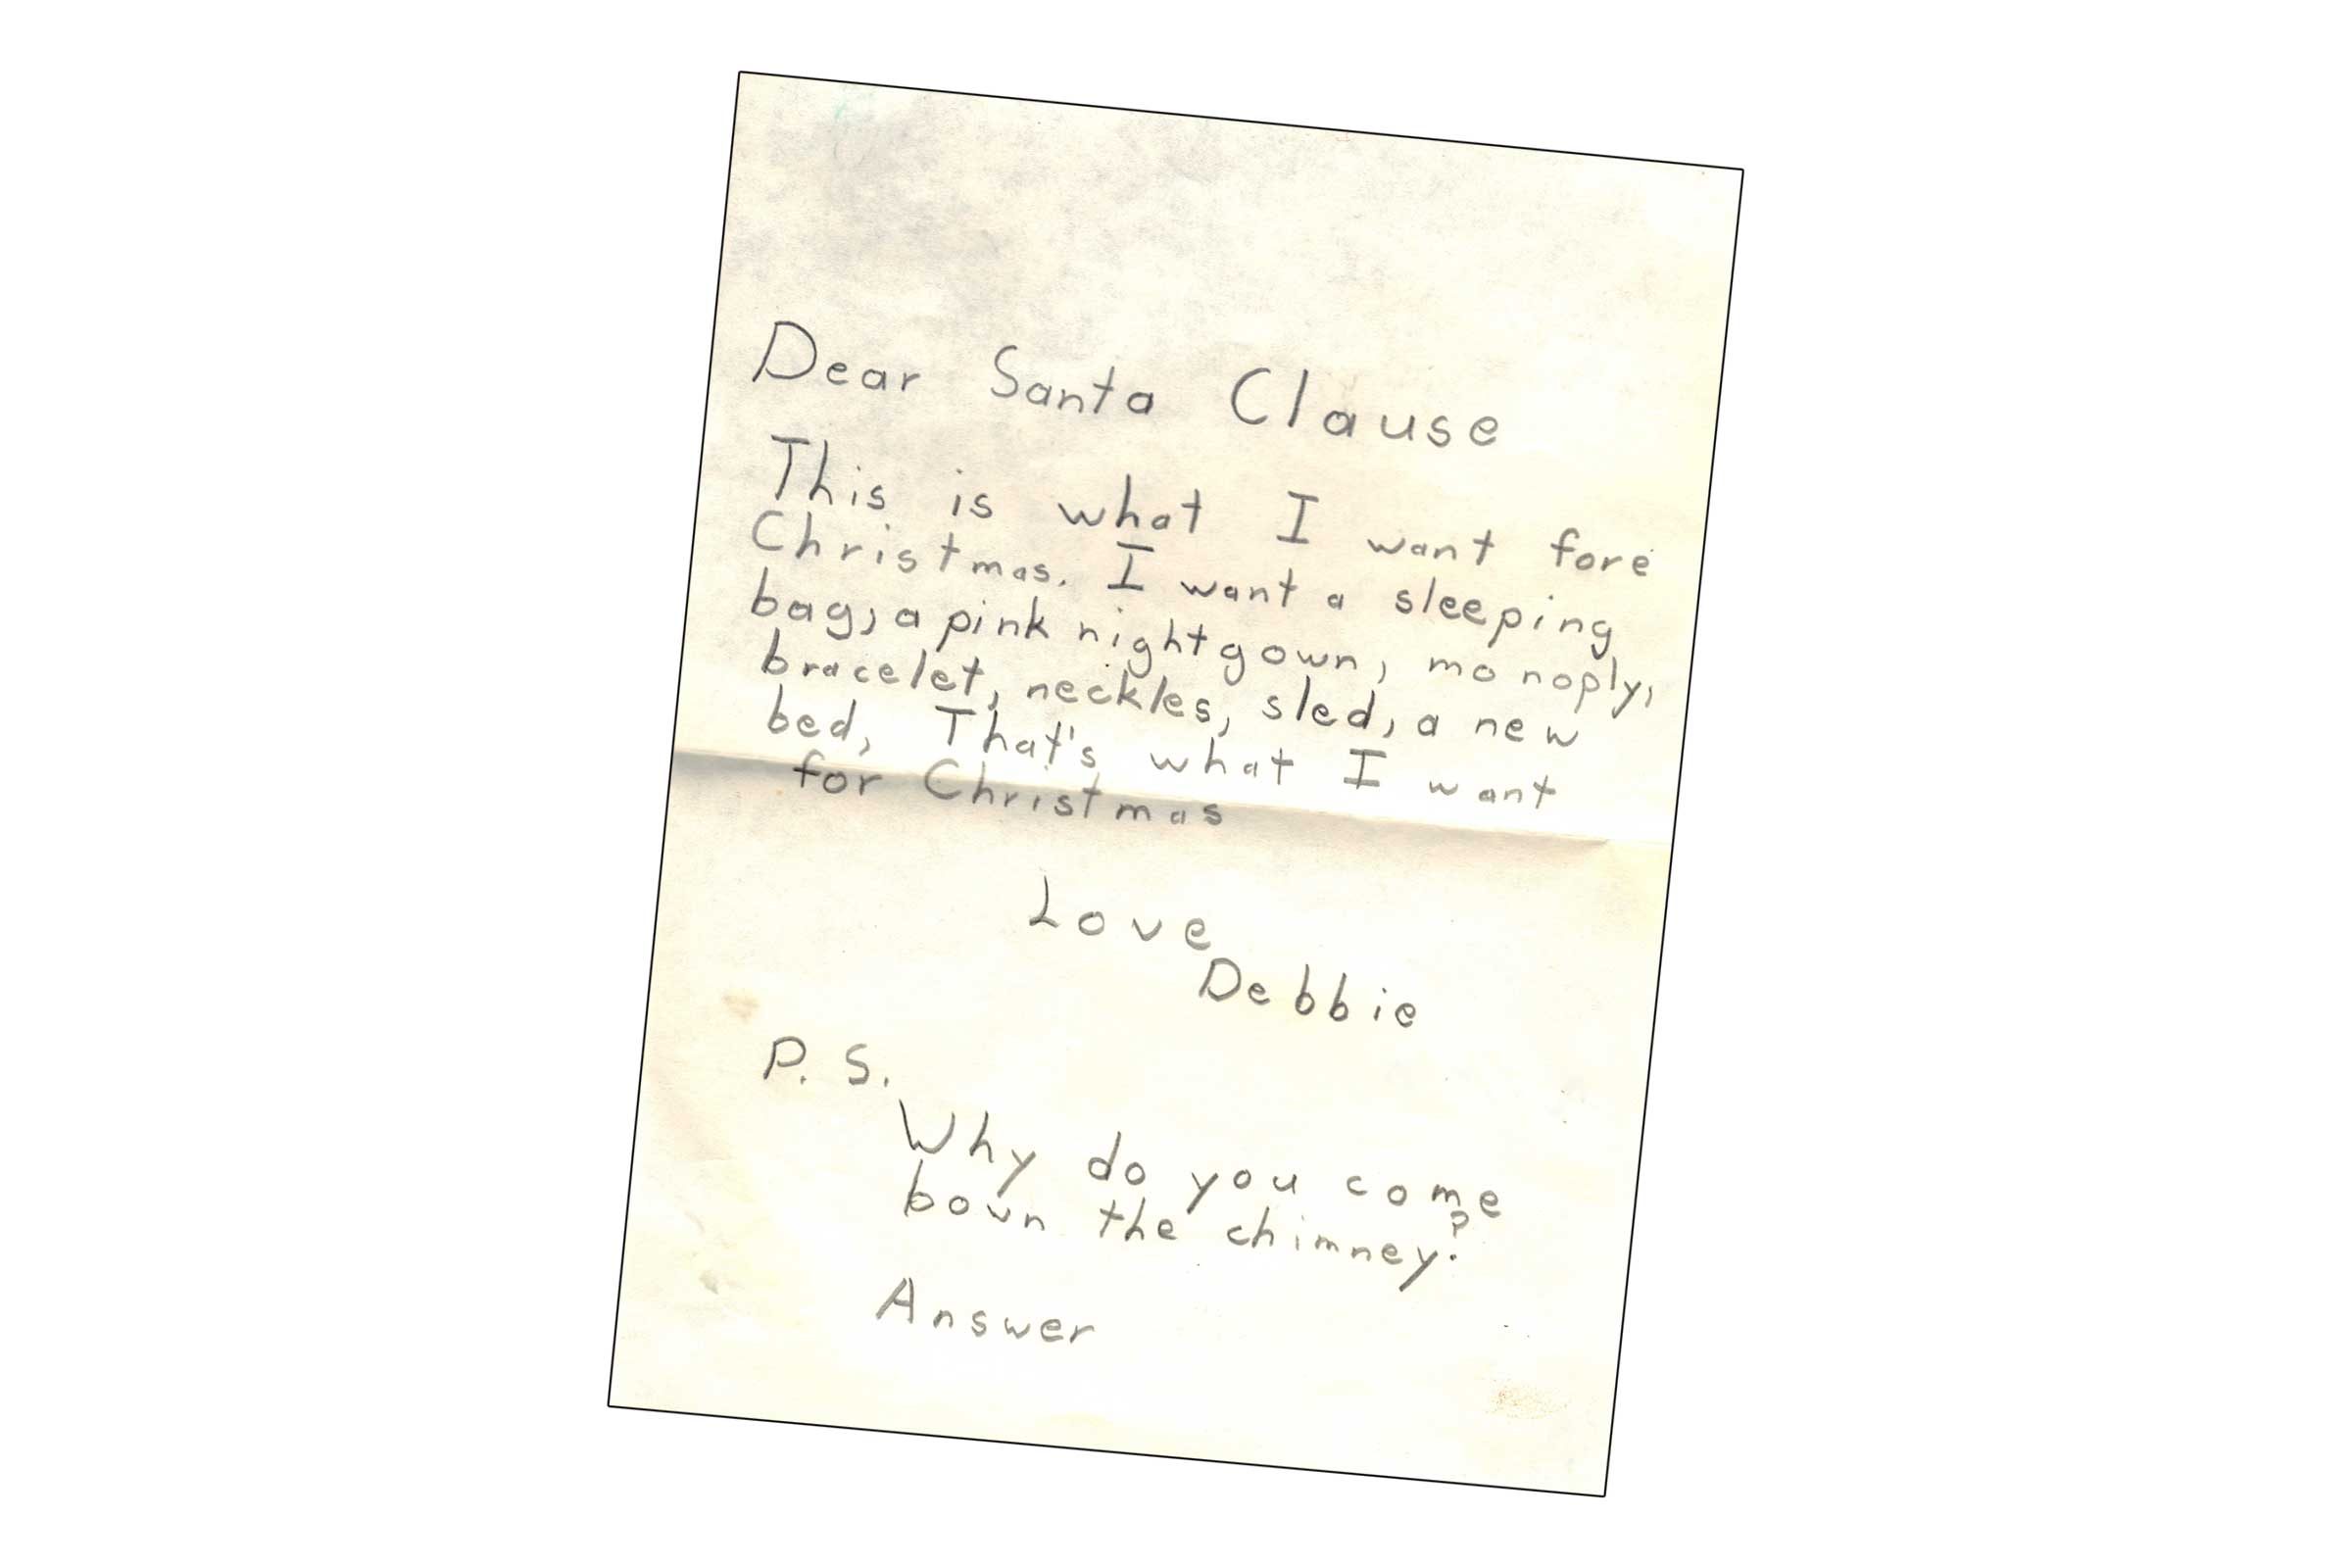 Dear Santa Clause
This is what I want fore
Christmas. I want a sleeping
bag, a pink nightgown, monoply,
bracelet, neckles, sled, a new
bed, That's what I want
for Christmas
Love
Debbie
P.S.
Why do you come
bown the chimney?
Answer